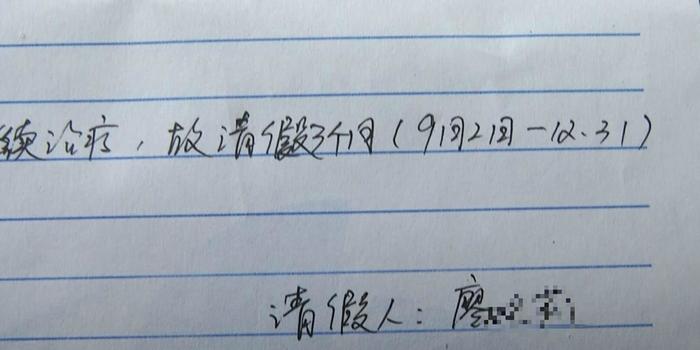 续治疗，故请假3个月（9月2日－12.31）
请假人：廖